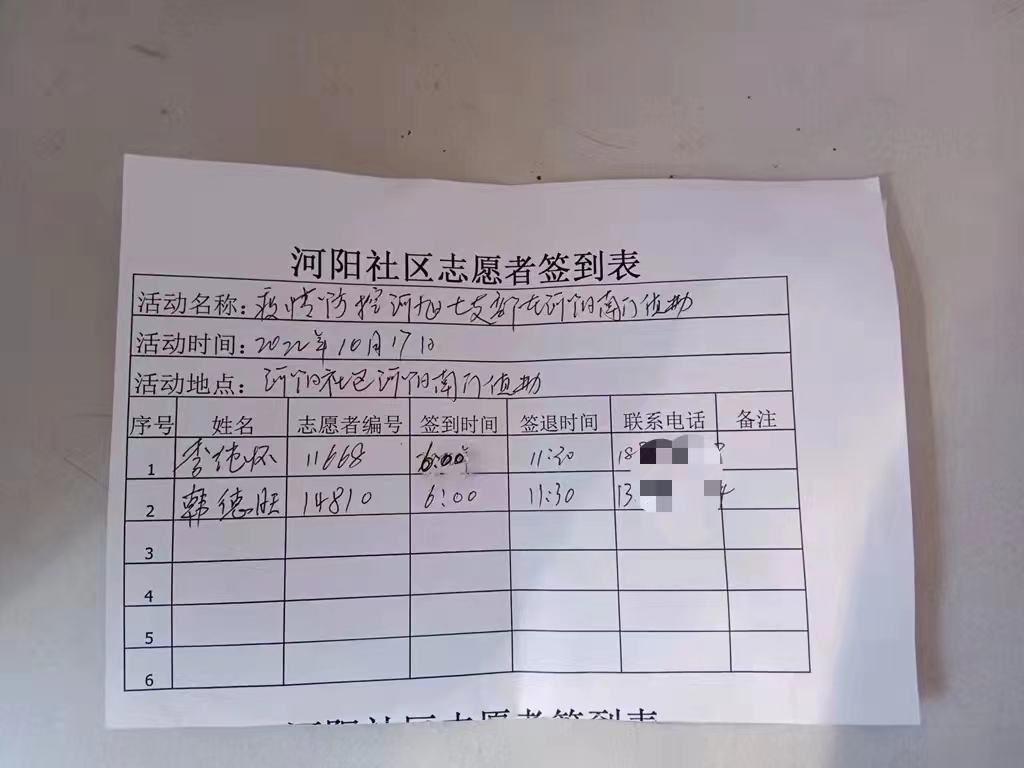 河阳社区志愿者签到表
活动名称：疫情防控河旭七支部在河阳南门值勤
活动时间：2022年10月17日
活动地点：河阳社区河阳南门值勤
序号 姓名 志愿者编号 签到时间 签退时间 联系电话 备注
1 李纯怀 11668 6:00 11:30 18 7
2 韩德旺 14810 6:00 11:30 13 4
3
4
5
6
河阳社区志愿者签到表